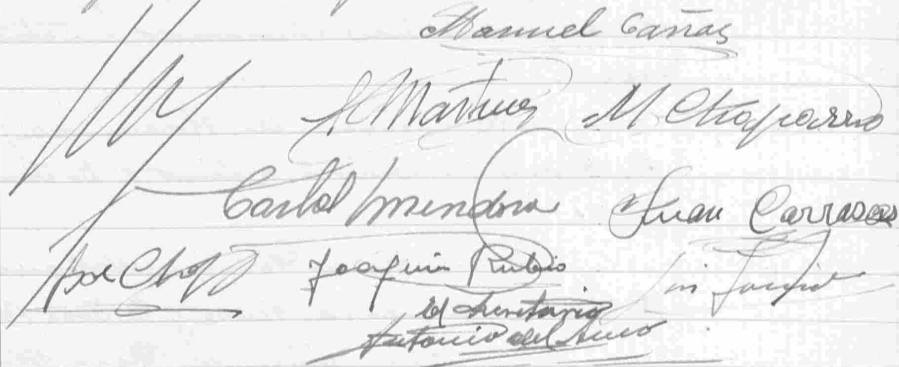 Manuel Cañas
A Martinez M Chaparro
Carlos Mendoza Juan Carrascos
Jose Chap Joaquin Rubio
El Secretario
Antonio del Amo